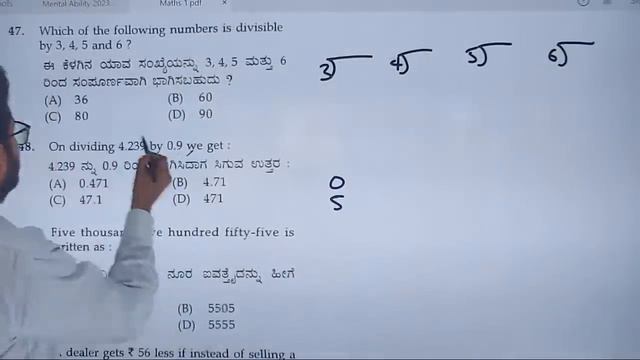 Mental Ability 2023
Maths 1 pdf
47. Which of the following numbers is divisible
by 3, 4, 5 and 6 ?
ಈ ಕೆಳಗಿನ ಯಾವ ಸಂಖ್ಯೆಯನ್ನು 3, 4, 5 ಮತ್ತು 6
ರಿಂದ ಸಂಪೂರ್ಣವಾಗಿ ಭಾಗಿಸಬಹುದು ?
(A) 36 (B) 60
(C) 80 (D) 90
3 4 5 6
48. On dividing 4.239 by 0.9 we get :
4.239 ನ್ನು 0.9 ಸಿದಾಗ ಸಿಗುವ ಉತ್ತರ :
(A) 0.471 (B) 4.71
(C) 47.1 (D) 471
0
5
Five thousand hundred fifty-five is
as :
ನೂರ ಐವತ್ತೈದನ್ನು ಹೀಗೆ
(B) 5505
(D) 5555
dealer gets ₹ 56 less if instead of selling a